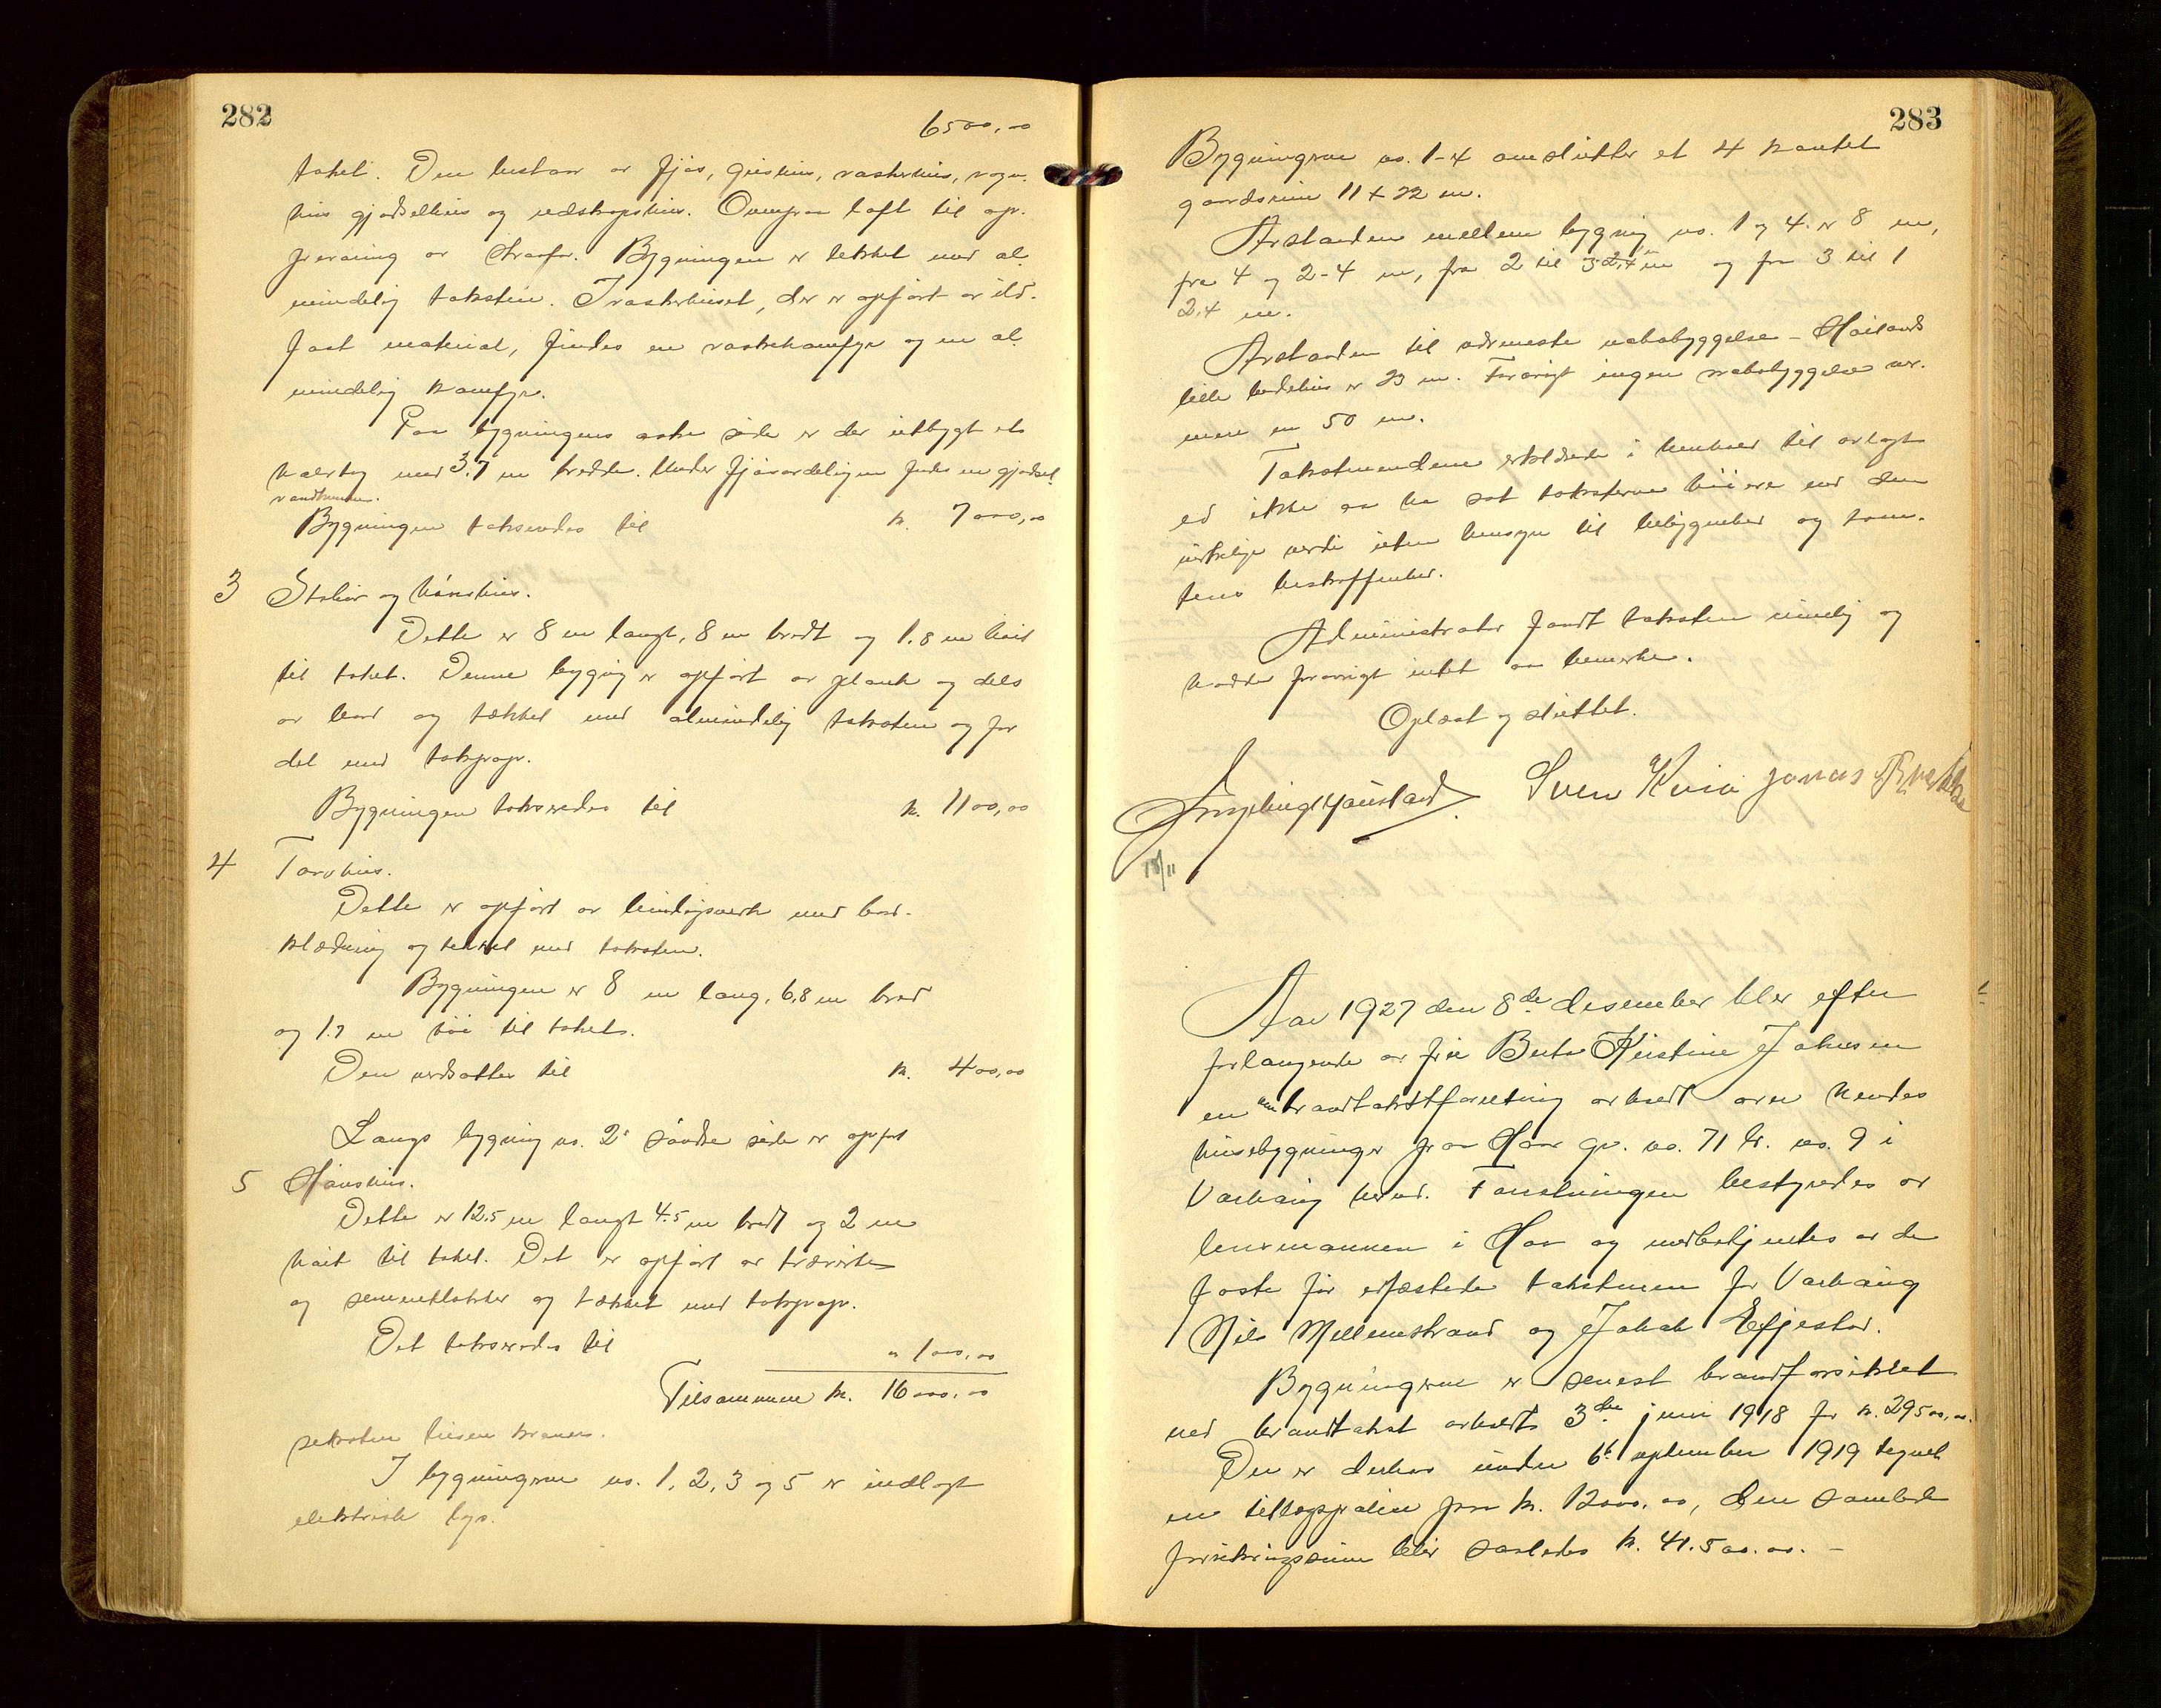 282
6500,00
taket. Den bestaar av fjøs, grishus, vaskehus, vogn-
hus gjødselhus og redskapshus. Ovenpaa loft til op-
prevaring av straafor. Bygningen er tekket med al-
mindelig taksten. I vaskehuset, der er opført av ild-
fast material, findes en vaskekomfyr og en al-
mindelig komfyr.
Paa bygningens østre side er der utbygt et
halvtag med 3.7 m bredde. Under fjøsavdelingen findes en gjødsel-
vandkum.
Bygningen takseredes til k. 7000,00
3 Stabur og hønshus.
Dette er 8 m langt, 8 m bredt og 1.8 m høit
til taket. Denne bygning er opført av plank og dels
av bord og tækket med almindelig taksten og for
del med takpap.
Bygningen takseredes til k. 1100,00
4 Torvhus.
Dette er opført av bindingsverk med bord-
klædning og tekket med taksten.
Bygningen er 8 m lang, 6,8 m bred
og 1.7 m høi til taket.
Den verdsattes til k. 400,00
Langs bygning no. 2's søndre side er opført
5 Hønshus.
Dette er 12.5 m langt 4.5 m bredt og 2 m
høit til taket. Det er opført av trævirke
og sementblokker og tækket med takpap.
Det takseredes til " 1000,00
Tilsammen k. 16000,00
seksten tusen kroner.
I bygningerne no. 1, 2, 3 og 5 er indlagt
elektrisk lys.
283
Bygningerne no. 1-4 omslutter et 4 kantet
gaardsrum 11 x 22 m.
Avstanden mellem bygning no. 1 og 4 er 8 m,
fra 4 og 2 - 4 m, fra 2 til 3 2,4 m og fra 3 til 1
2,4 m.
Avstanden til nærmeste nabobyggelse - Høilands
lille badehus er 23 m. Forøvrigt ingen nabobyggelse nær-
mere en 50 m.
Takstmendene erklærede i henhold til avlagt
ed ikke aa ha sat taksterne høiere end den
virkelige verdi uten hensyn til beliggenhed og tom-
tens beskaffenhed.
Administrator fandt taksten rimelig og
hadde forøvrigt intet aa bemerke.
Oplæst og sluttet.
Sven Kvia Jonas
18/11
Aar 1927 den 8de desember blev efter
forlangende av fru Berta Kristine Jakobsen
en ny brandtakstforretning avholdt over hendes
husebygninger paa Haar gr. no. 71 br. no. 9 i
Varhaug herred. Forretningen bestyredes av
lensmannen i Haa og medbetjentes av de
faste før edfæstede takstmen for Varhaug
Nils Mellemstrand og Jakob Efjestad.
Bygningerne er senest brandforsikret
ved brandtakst avholdt 3dje juni 1918 for k. 29500,00.
Den er derhos under 6te september 1919 tegnet
en tillægspolise paa k. 12000,00, den samlede
forsikringssum blir saaledes k. 41.500.00. -